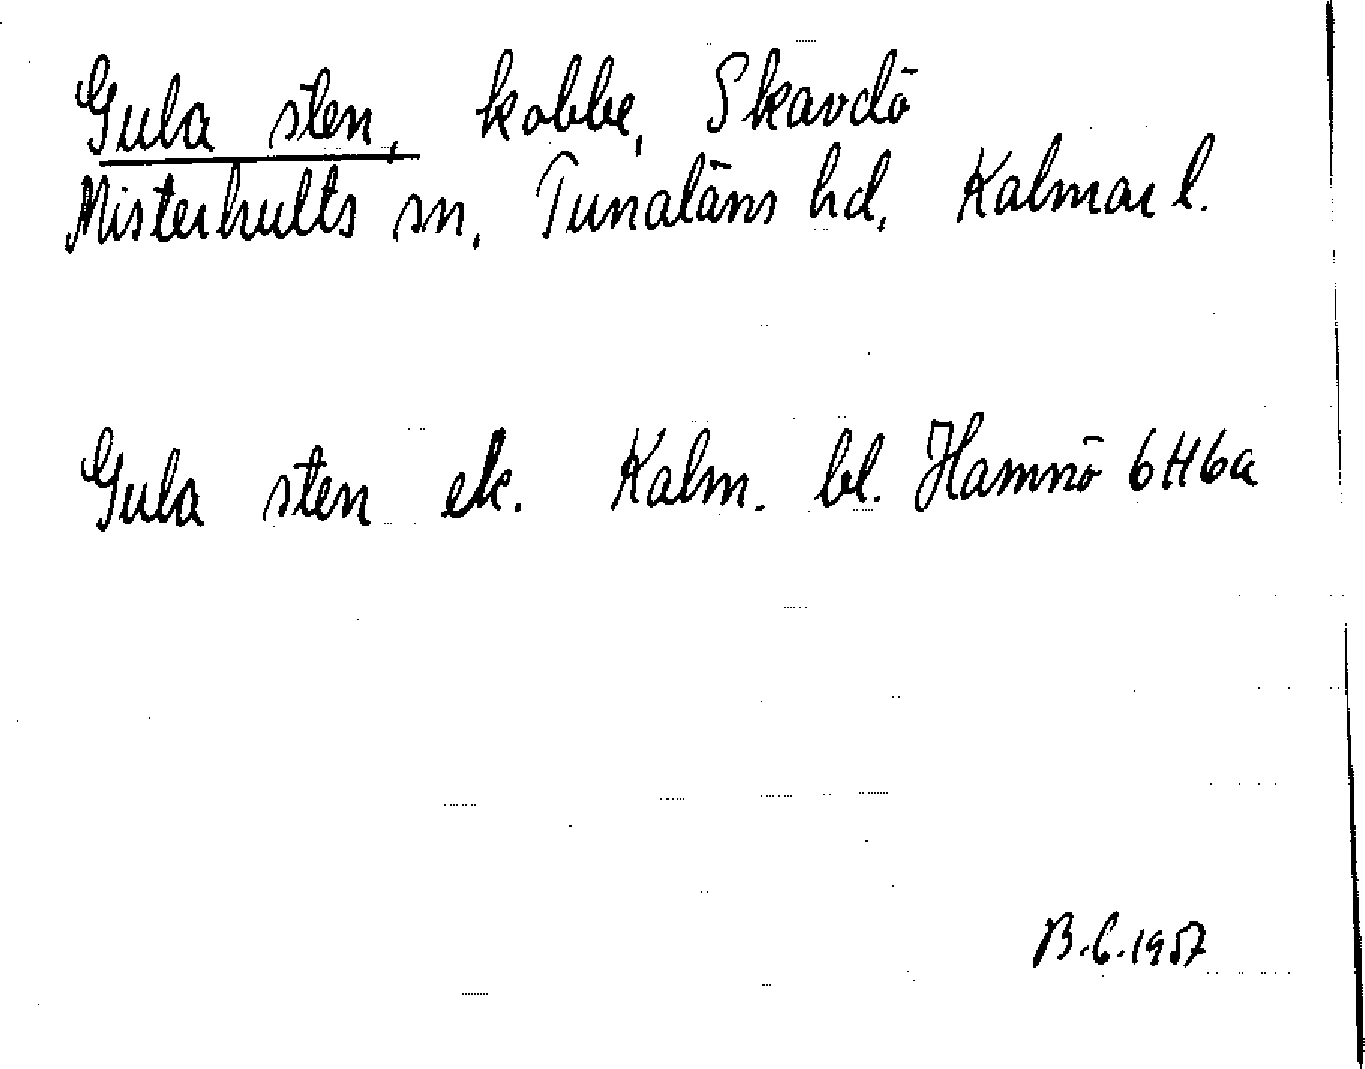 Gula sten, kobbe, Skavdö
Misterhults sn, Tunaläns hd, Kalmar l.
Gula sten ek. Kalm. bl. Hamnö 6H6a
B.C. 1957